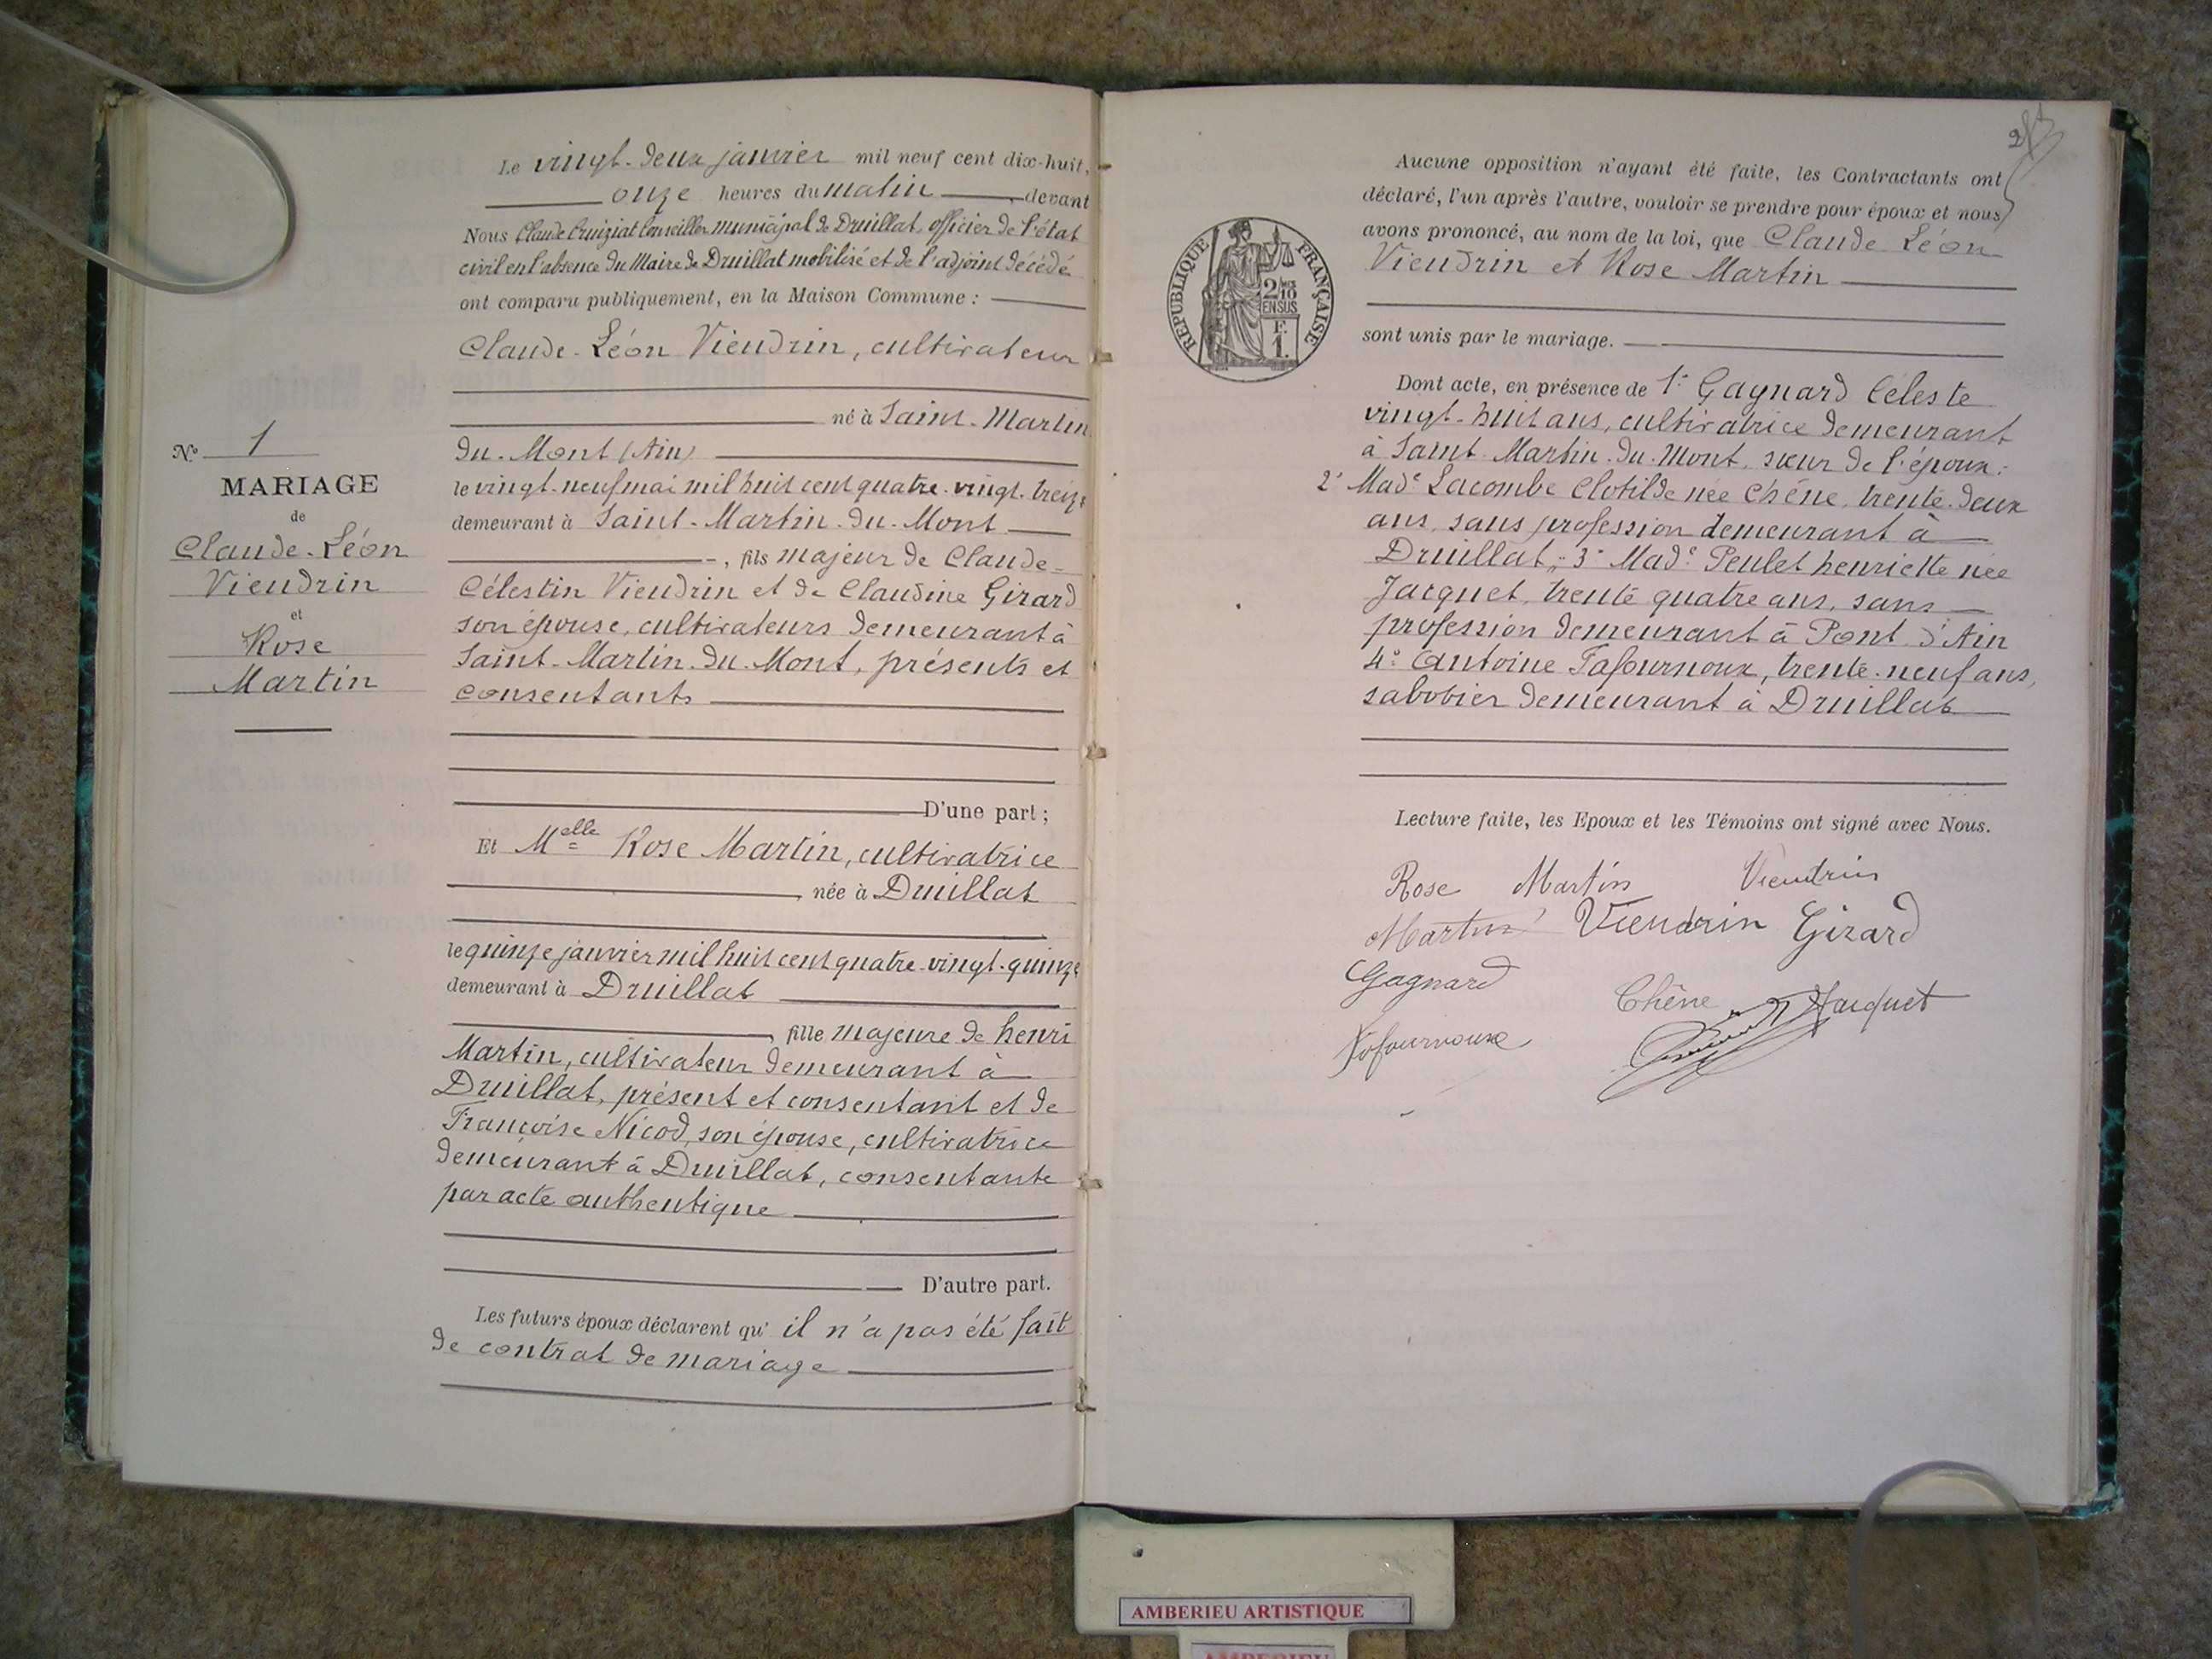 Le vingt-deux janvier mil neuf cent dix-huit,
onze heures du matin devant
Nous Claude Cruiziat Conseiller municipal de Druillat, officier de l'état
civil en l'absence du Maire de Druillat mobilisé et de l'adjoint décédé
ont comparu publiquement, en la Maison Commune :
Claude-Léon Vieudrin, cultivateur
né à Saint-Martin
du-Mont (Ain)
le vingt-neuf mai mil huit cent quatre-vingt-treize
demeurant à Saint-Martin-du-Mont
, fils majeur de Claude-
Célestin Vieudrin et de Claudine Girard
son épouse, cultivateurs demeurant à
Saint-Martin-du-Mont, présents et
consentants
D'une part ;
Et Melle Rose Martin, cultivatrice
née à Druillat
le quinze janvier mil huit cent quatre-vingt-quinze
demeurant à Druillat
, fille majeure de henri
Martin, cultivateur demeurant à
Druillat, présent et consentant et de
Françoise Nicod, son épouse, cultivatrice
demeurant à Druillat, consentante
par acte authentique
D'autre part.
Les futurs époux déclarent qu' il n'a pas été fait
de contrat de mariage
No 1
MARIAGE
de
Claude-Léon
Vieudrin
et
Rose
Martin
2
Aucune opposition n'ayant été faite, les Contractants ont
déclaré, l'un après l'autre, vouloir se prendre pour époux et nous
avons prononcé, au nom de la loi, que Claude Léon
Vieudrin et Rose Martin
sont unis par le mariage.
Dont acte, en présence de 1° Gagnard Céleste
vingt-huit ans, cultivatrice demeurant
à Saint-Martin-du-Mont, sœur de l'époux;
2° Made Lacombe Clotilde née Chêne, trente-deux
ans, sans profession demeurant à
Druillat; 3° Made Peulet henriette née
Jacquet, trente quatre ans, sans
profession demeurant à Pont d'Ain
4° Antoine Tafournoux, trente-neuf ans,
sabotier demeurant à Druillat
Lecture faite, les Epoux et les Témoins ont signé avec Nous.
Rose Martin Vieudrin
Martin Vieudrin Girard
Gagnard
Chêne Jacquet
Tafournoux
REPUBLIQUE FRANÇAISE
2/10
EN SUS
F.
1.
AMBERIEU ARTISTIQUE
AMBERIEU